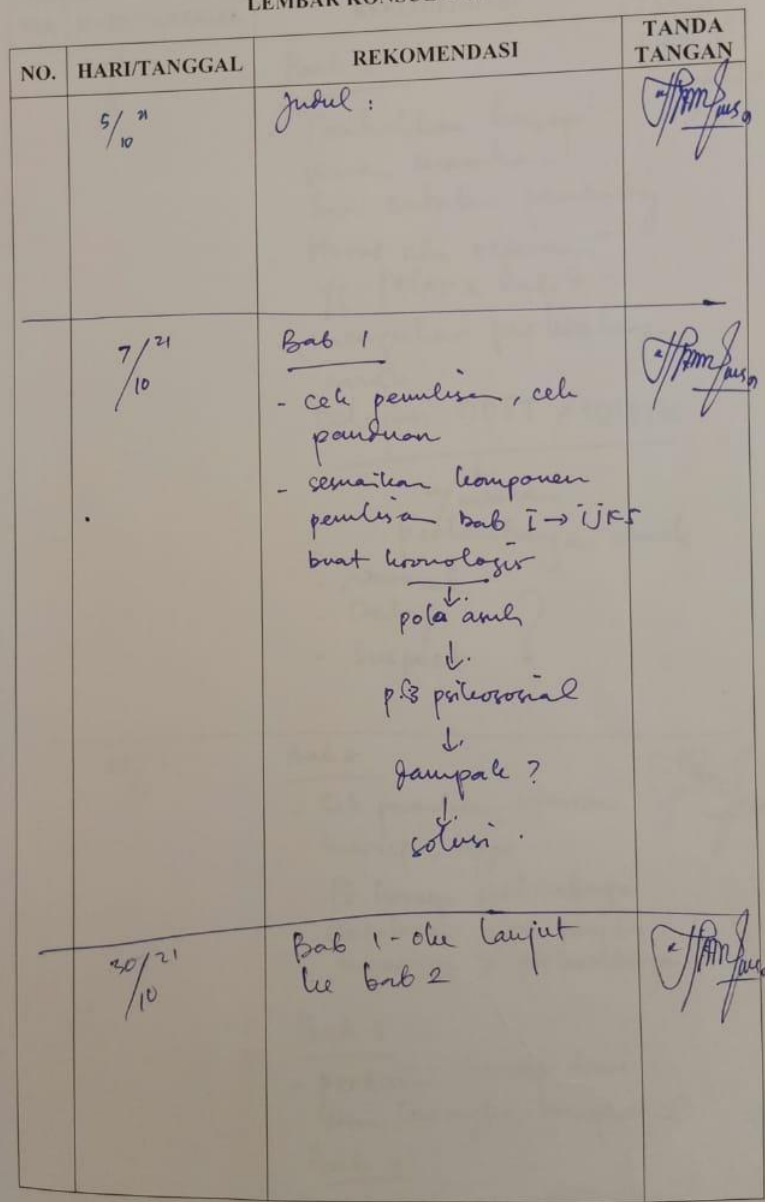 LEMBAR KONSUL
NO. HARI/TANGGAL REKOMENDASI TANDA TANGAN
5/10 21 Judul :
7/10 21 Bab 1
- cek penulisan, cek
panduan
- sesuaikan komponen
penulisan bab I → IJKS
buat kronologis
↓
pola asuh
↓
psikososial
↓
dampak ?
↓
solusi .
30/10 21 Bab 1 - oke lanjut
ke bab 2